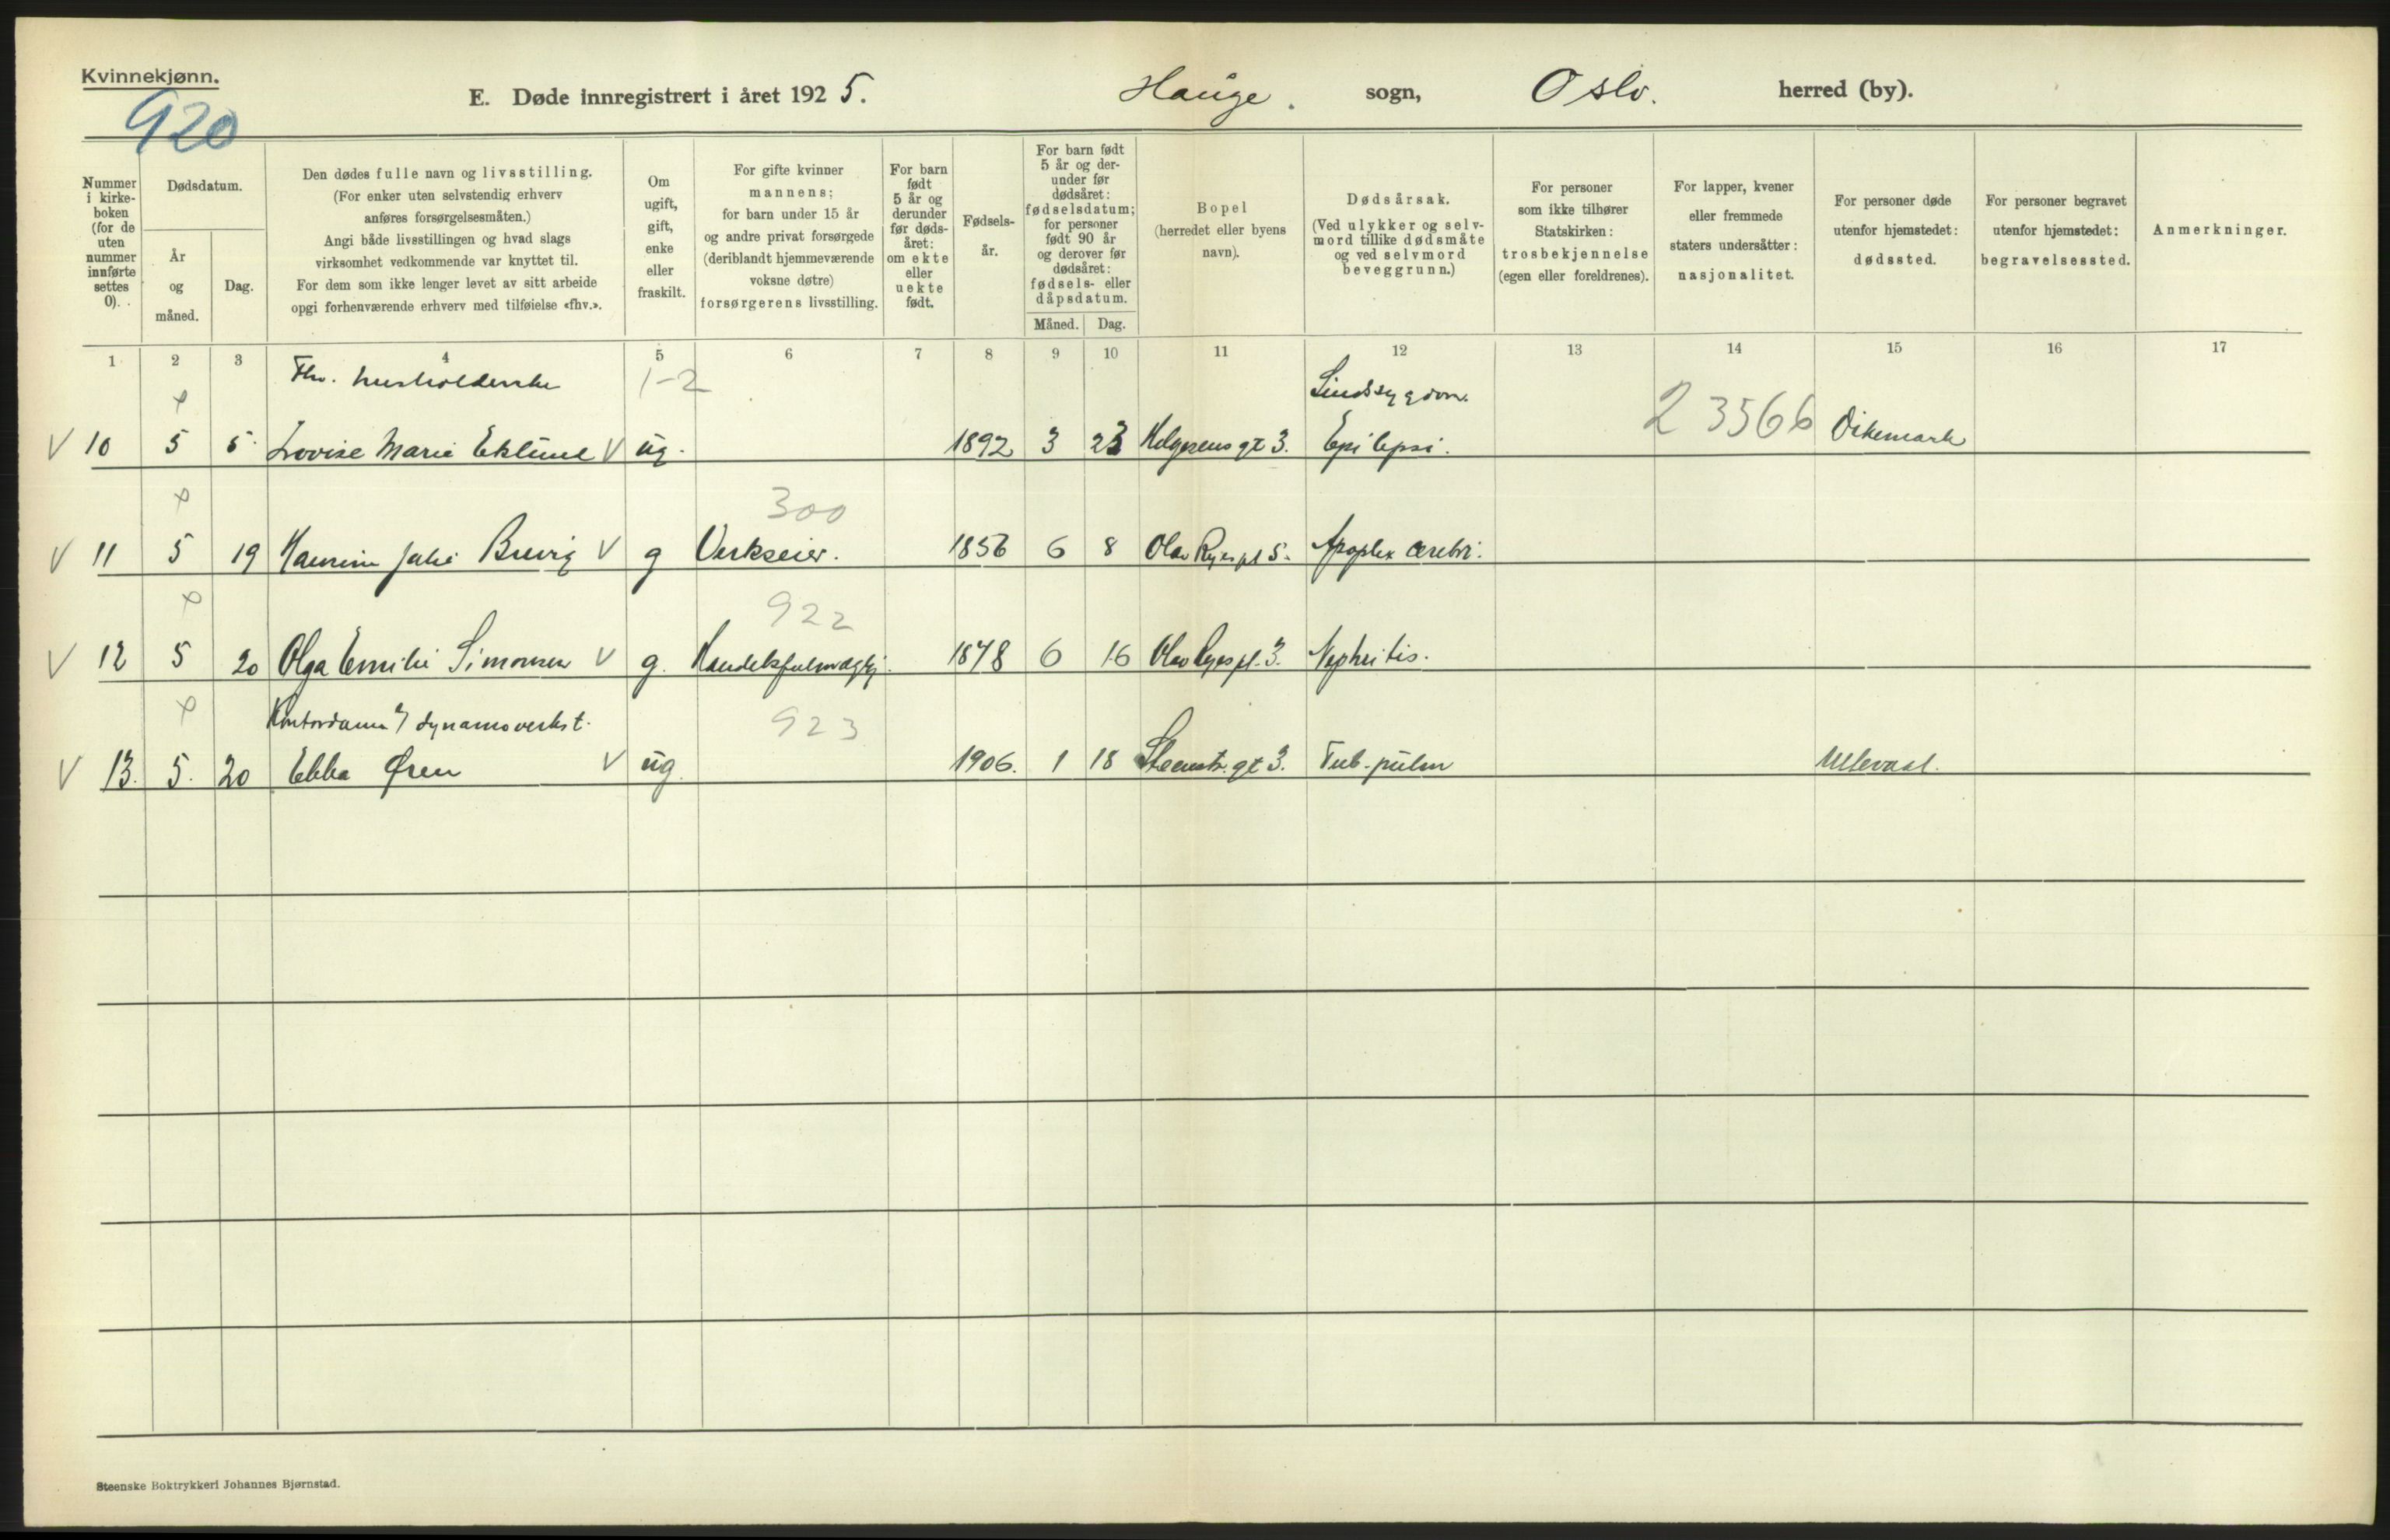 Kvinnekjønn.
920
E. Døde innregistrert i året 1925. Hauge. sogn, Oslo. herred (by).
Nummer i kirke- boken (for de uten nummer innførte settes 0).
Dødsdatum.
År og måned.
Dag.
Den dødes fulle navn og livsstilling.
(For enker uten selvstendig erhverv
anføres forsørgelsesmåten.)
Angi både livsstillingen og hvad slags
virksomhet vedkommende var knyttet til.
For dem som ikke lenger levet av sitt arbeide
opgi forhenværende erhverv med tilføielse «fhv.».
Om ugift, gift, enke eller fraskilt.
For gifte kvinner
mannens;
for barn under 15 år
og andre privat forsørgede
(deriblandt hjemmeværende
voksne døtre)
forsørgerens livsstilling.
For barn født 5 år og derunder før døds- året: om ekte eller uekte født.
Fødsels- år.
For barn født
5 år og der-
under før
dødsåret:
fødselsdatum;
for personer
født 90 år
og derover før
dødsåret:
fødsels- eller
dåpsdatum.
Måned. Dag.
Bopel
(herredet eller byens
navn).
Dødsårsak.
(Ved ulykker og selv-
mord tillike dødsmåte
og ved selvmord
beveggrunn.)
For personer
som ikke tilhører
Statskirken:
trosbekjennelse
(egen eller foreldrenes).
For lapper, kvener
eller fremmede
staters undersåtter:
nasjonalitet.
For personer døde
utenfor hjemstedet:
dødssted.
For personer begravet
utenfor hjemstedet:
begravelsessted.
Anmerkninger.
1 2 3 4 5 6 7 8 9 10 11 12 13 14 15 16 17
Fhv. husholderske 1-2 Sindssygdom.
V 10 5 5 Lovise Marie Eklund V ug. 1892 3 23 Helgesens gt 3. Epilepsi. 23566 Dikemark
300
V 11 5 19 Julie Brevig V g Verkseier. 1856 6 8 Olav Ryes pl 5. Apoplex cerebri.
922
V 12 5 20 Olga Emilie Simonsen V g. 1878 6 16 Olav Ryes pl. 3. Nephritis.
Kontordame v/ dynamoverkst. 923
V 13. 5. 20 Ebba Øren V ug. 1906. 1 18 Steenstr. gt 3. Tub. pulm Ullevaal.
Steenske Boktrykkeri Johannes Bjørnstad.